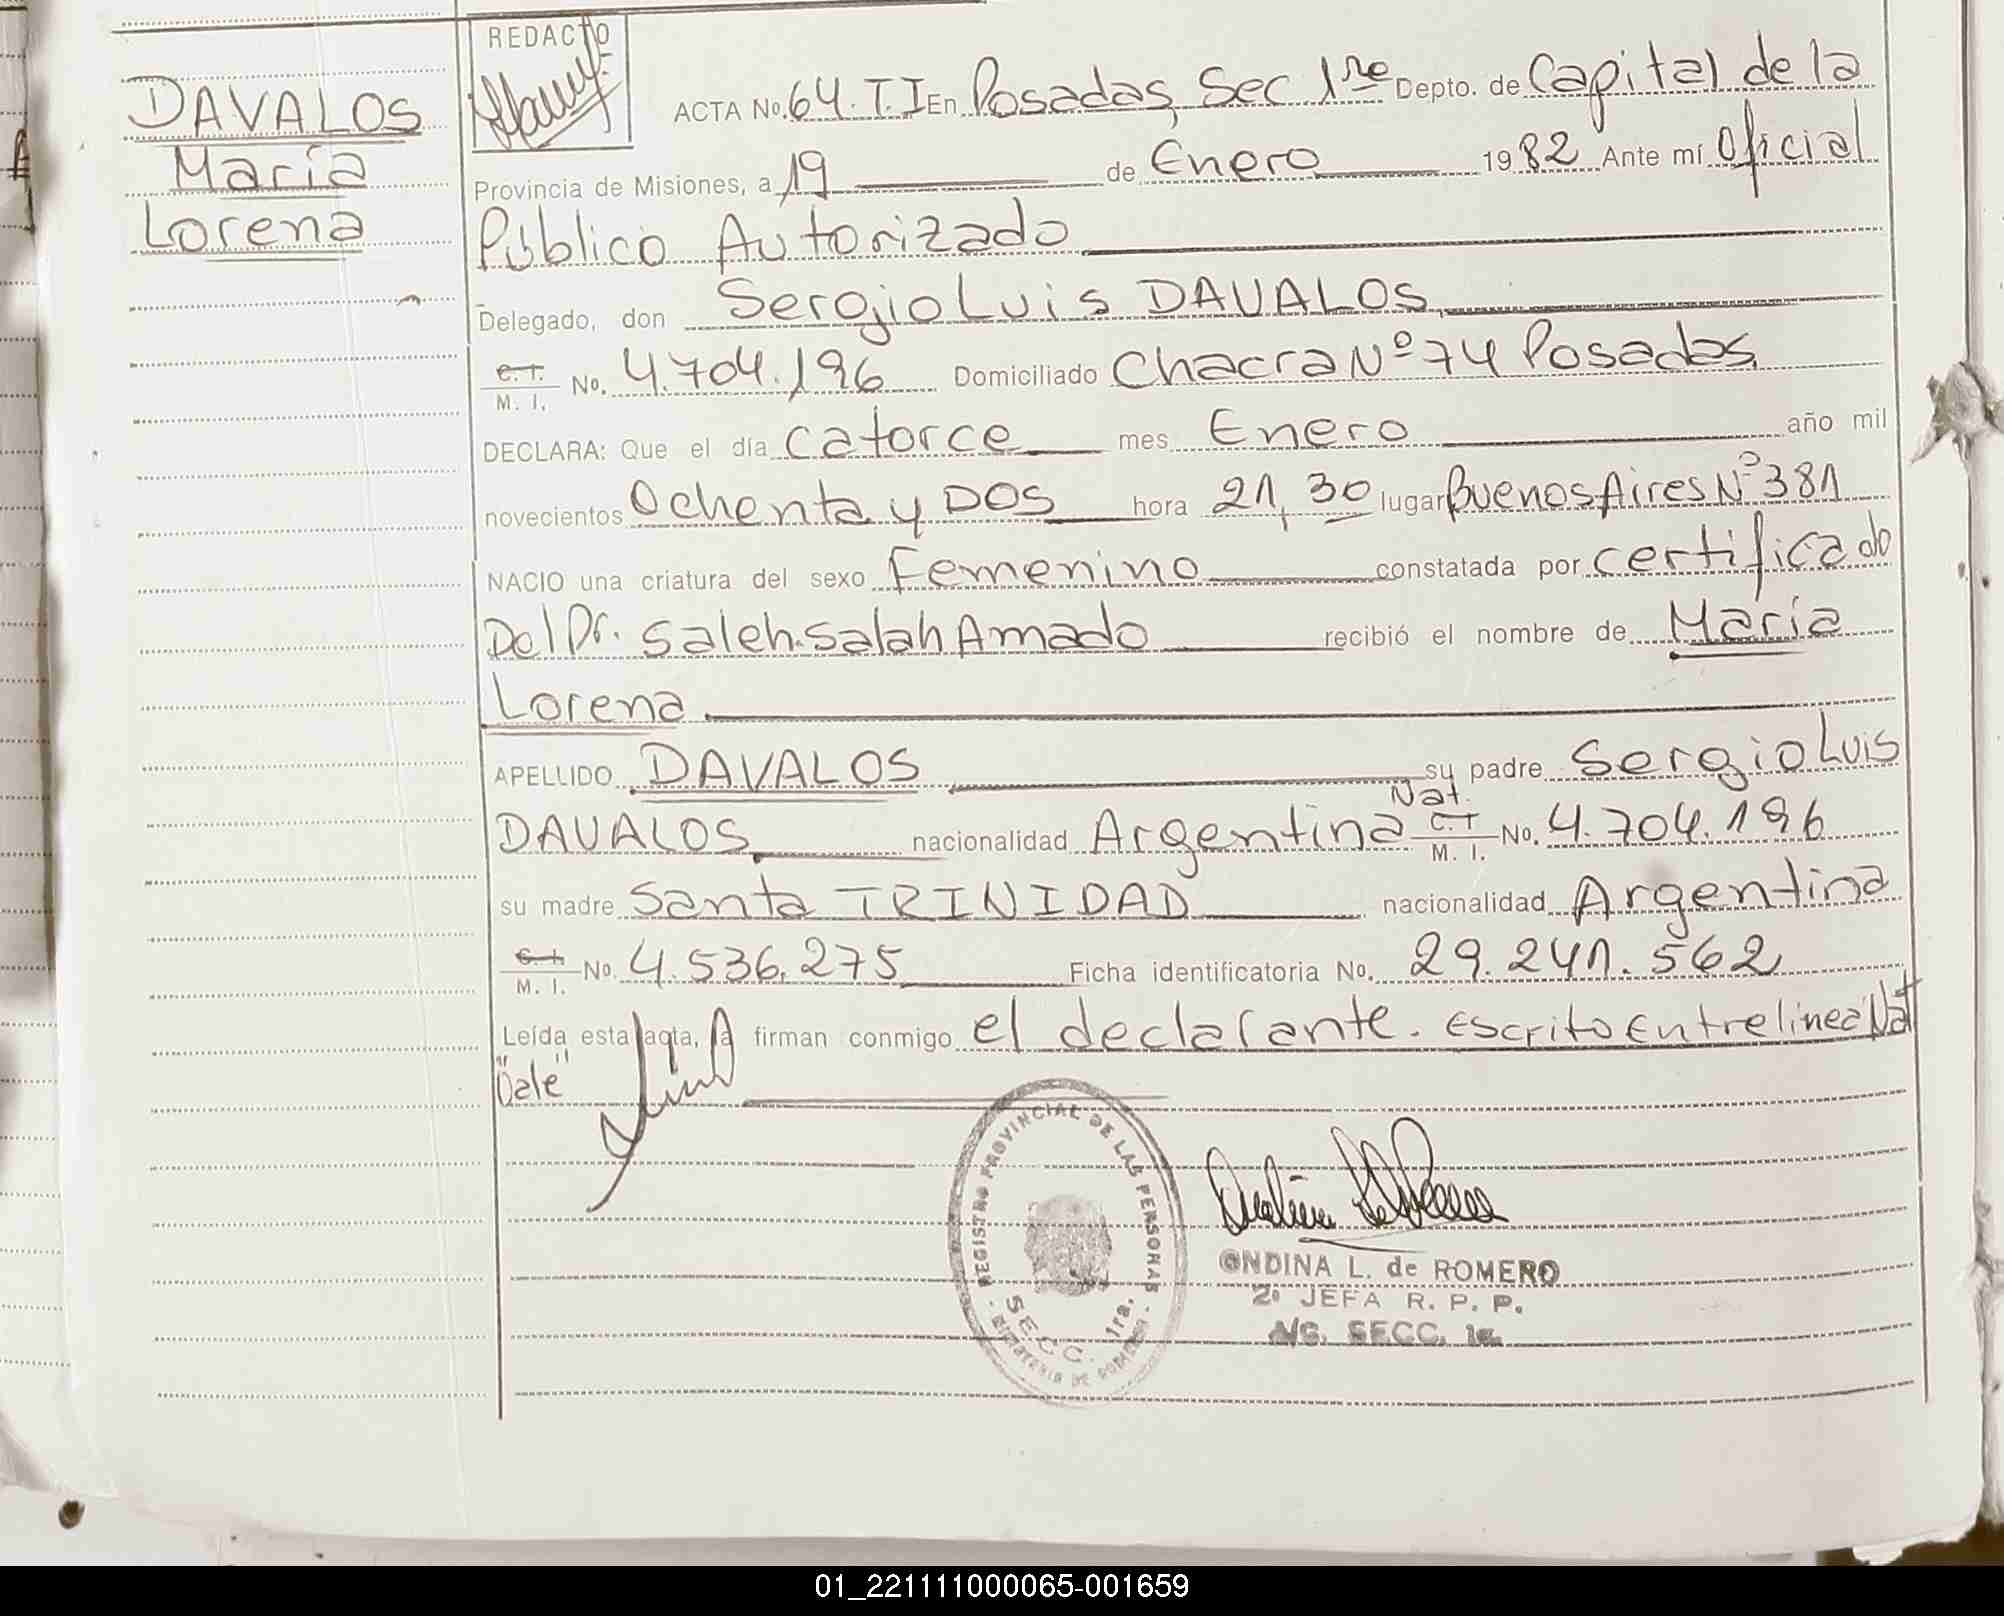 DAVALOS
María
Lorena
REDACTO
ACTA No. 64. T. I En Posadas, Sec 1ra Depto. de Capital de la
Provincia de Misiones, a 19 de Enero 1982 Ante mí Oficial
Público Autorizado
Delegado, don Sergio Luis DAVALOS
C.I. M. I. No. 4.704.196 Domiciliado Chacra Nº 74 Posadas
DECLARA: Que el día catorce mes Enero año mil
novecientos Ochenta y DOS hora 21,30 lugar Buenos Aires Nº 381
NACIO una criatura del sexo Femenino constatada por certificado
Del Dr. Saleh. Salah Amado recibió el nombre de María
Lorena
APELLIDO DAVALOS su padre Sergio Luis
DAVALOS nacionalidad Argentina Nat. C.I M. I. No. 4.704.196
su madre Santa TRINIDAD nacionalidad Argentina
C.I. M. I. No. 4.536.275 Ficha identificatoria No. 29.241.562
Leída esta acta, la firman conmigo el declarante. Escrito Entrelinea Nat
"Vale"
REGISTRO PROVINCIAL DE LAS PERSONAS
SECC. 1ra.
MINISTERIO DE GOBIERNO
ONDINA L. de ROMERO
2º JEFA R. P. P.
A/C. SECC. 1a.
01_221111000065-001659